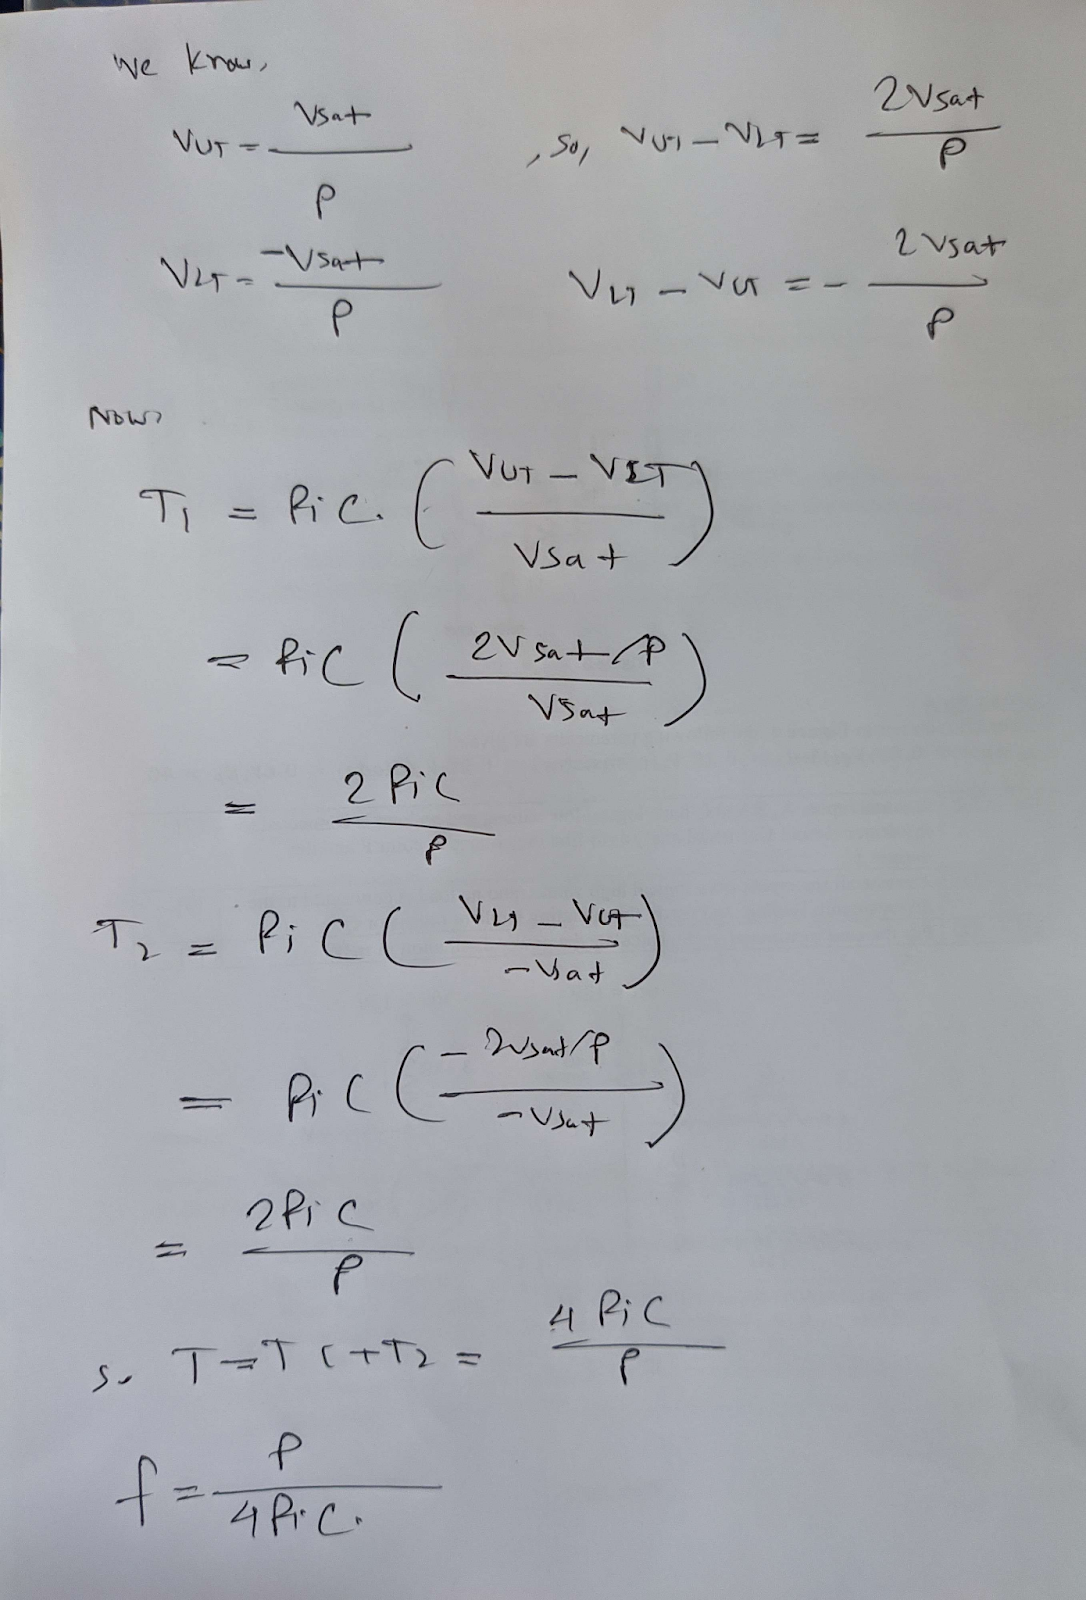 We know,
VUT = Vsat / P , so, VUT - VLT = 2Vsat / P
VLT = -Vsat / P VLT - VUT = - 2Vsat / P
Now,
T1 = RiC. ( VUT - VLT / Vsat )
= RiC ( 2Vsat/P / Vsat )
= 2RiC / P
T2 = RiC ( VLT - VUT / -Vsat )
= RiC ( -2Vsat/P / -Vsat )
= 2RiC / P
So T = T1 + T2 = 4RiC / P
f = P / 4RiC.